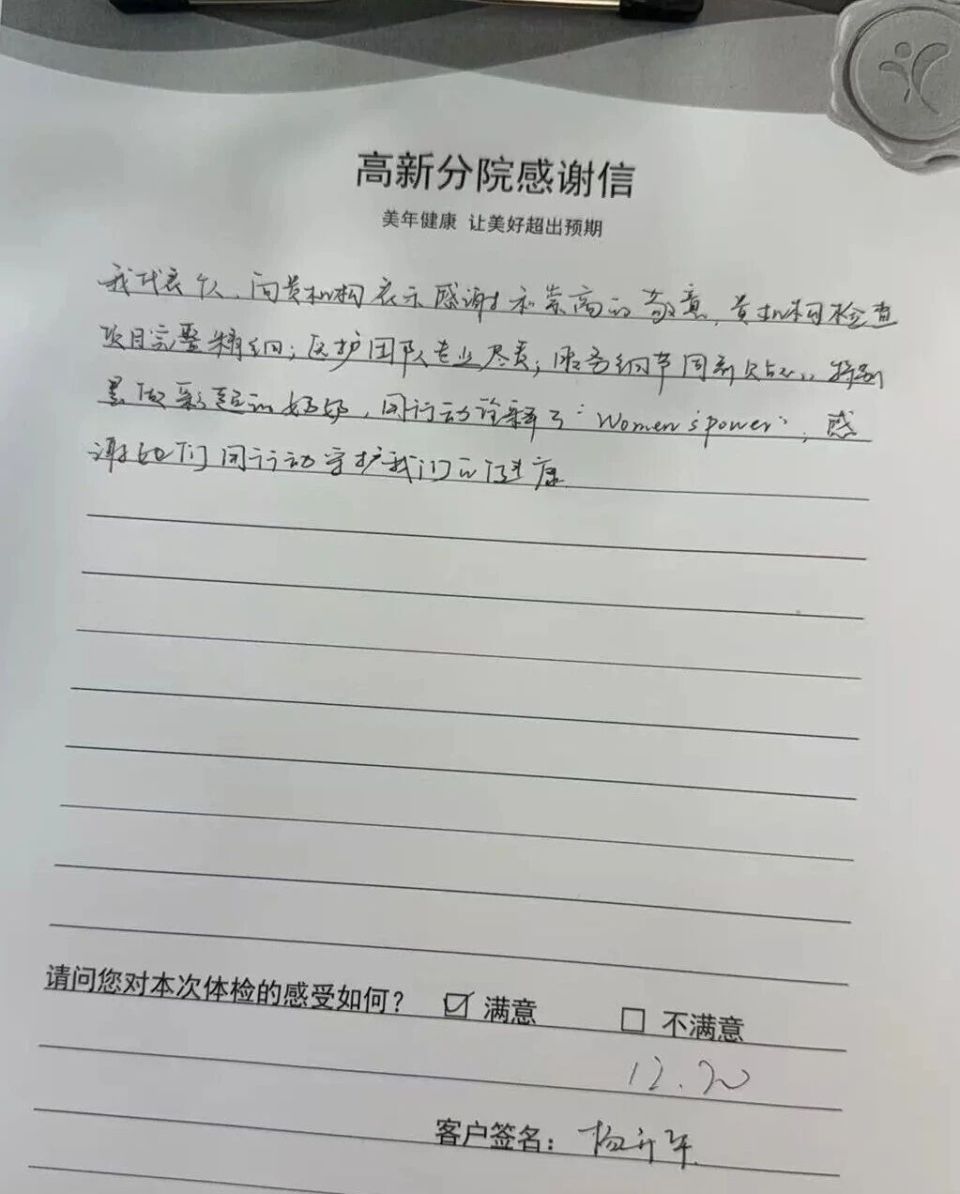 高新分院感谢信
美年健康 让美好超出预期
我代表个人,向贵机构表示感谢和崇高的敬意,贵机构检查
项目完整精细;医护团队专业尽责;服务细节周到 特别
是做彩超的 ,用行动诠释了“Women's power”,感
谢她们用行动守护我们的健康
请问您对本次体检的感受如何? ☑ 满意 □ 不满意
12.20
客户签名:杨